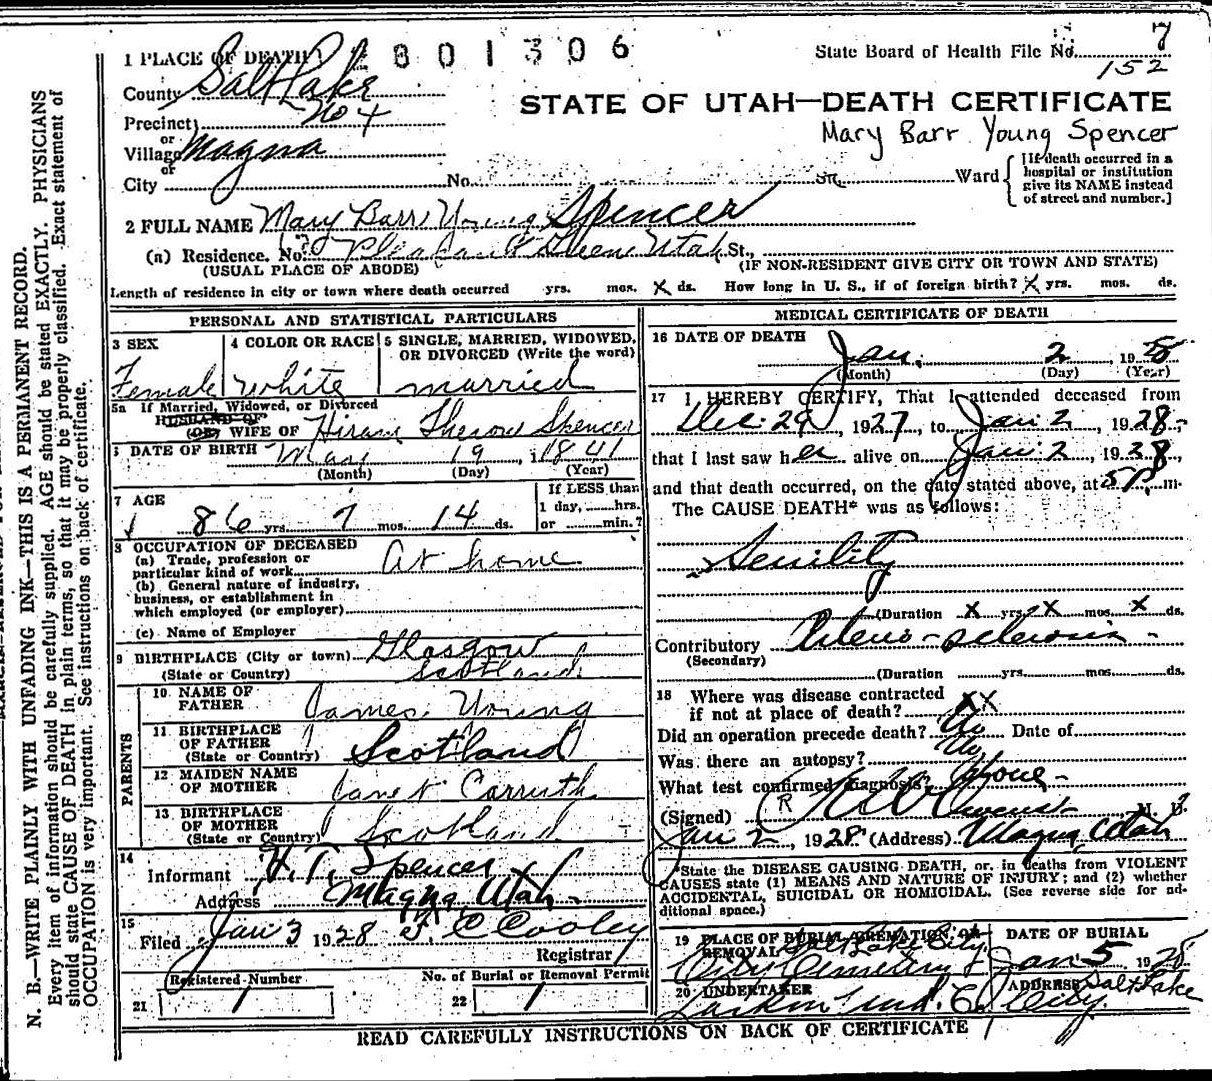 1 PLACE OF DEATH 2801306
State Board of Health File No. 7
152
County Salt Lake
STATE OF UTAH—DEATH CERTIFICATE
Precinct No 4
Mary Barr Young Spencer
or
Village Magna
or
City No. St. Ward
[If death occurred in a
hospital or institution
give its NAME instead
of street and number.]
2 FULL NAME Mary Barr Young Spencer
(a) Residence. No. Pleasant Green Utah St.,
(USUAL PLACE OF ABODE) (IF NON-RESIDENT GIVE CITY OR TOWN AND STATE)
Length of residence in city or town where death occurred yrs. mos. X ds. How long in U. S., if of foreign birth? X yrs. mos. ds.
PERSONAL AND STATISTICAL PARTICULARS
3 SEX 4 COLOR OR RACE 5 SINGLE, MARRIED, WIDOWED,
OR DIVORCED (Write the word)
Female white married
5a If Married, Widowed, or Divorced
HUSBAND OF
(OR) WIFE OF Hiram Theron Spencer
6 DATE OF BIRTH May 19, 1841
(Month) (Day) (Year)
7 AGE
If LESS than
1 day, hrs.
or min.?
86 yrs. 7 mos. 14 ds.
8 OCCUPATION OF DECEASED
(a) Trade, profession or
particular kind of work At home
(b) General nature of industry,
business, or establishment in
which employed (or employer)
(c) Name of Employer
9 BIRTHPLACE (City or town) Glasgow
(State or Country) Scotland
PARENTS
10 NAME OF
FATHER James Young
11 BIRTHPLACE
OF FATHER
(State or Country) Scotland
12 MAIDEN NAME
OF MOTHER Janet Carruth
13 BIRTHPLACE
OF MOTHER
(State or Country) Scotland
14
Informant H. T. Spencer
Address Magna Utah
15
Filed Jan 3 1928 F. C Cooley
Registrar
Registered Number No. of Burial or Removal Permit
21 1 22 1
MEDICAL CERTIFICATE OF DEATH
16 DATE OF DEATH
Jan. 2, 1928
(Month) (Day) (Year)
17 I HEREBY CERTIFY, That I attended deceased from
Dec. 29, 1927, to Jan 2, 1928,
that I last saw her alive on Jan 2, 1928,
and that death occurred, on the date stated above, at 5 P m.
The CAUSE DEATH* was as follows:
Senility
(Duration X yrs. X mos. X ds.
Contributory Arterio-sclerosis
(Secondary)
(Duration yrs. mos. ds.
18 Where was disease contracted
if not at place of death? XX
Did an operation precede death? No Date of
Was there an autopsy? No
What test confirmed diagnosis? None
(Signed) Owens M. D.
Jan 2, 1928 (Address) Magna Utah
*State the DISEASE CAUSING DEATH, or, in deaths from VIOLENT
CAUSES state (1) MEANS AND NATURE OF INJURY; and (2) whether
ACCIDENTAL, SUICIDAL OR HOMICIDAL. (See reverse side for ad-
ditional space.)
19 PLACE OF BURIAL, CREMATION, OR
REMOVAL Salt Lake City
City Cemetery
DATE OF BURIAL
Jan 5 1928
20 UNDERTAKER
Larkin Und. Co
ADDRESS Salt Lake
City.
READ CAREFULLY INSTRUCTIONS ON BACK OF CERTIFICATE
N. B.—WRITE PLAINLY WITH UNFADING INK—THIS IS A PERMANENT RECORD.
Every item of information should be carefully supplied. AGE should be stated EXACTLY. PHYSICIANS
should state CAUSE OF DEATH in plain terms, so that it may be properly classified. Exact statement of
OCCUPATION is very important. See instructions on back of certificate.